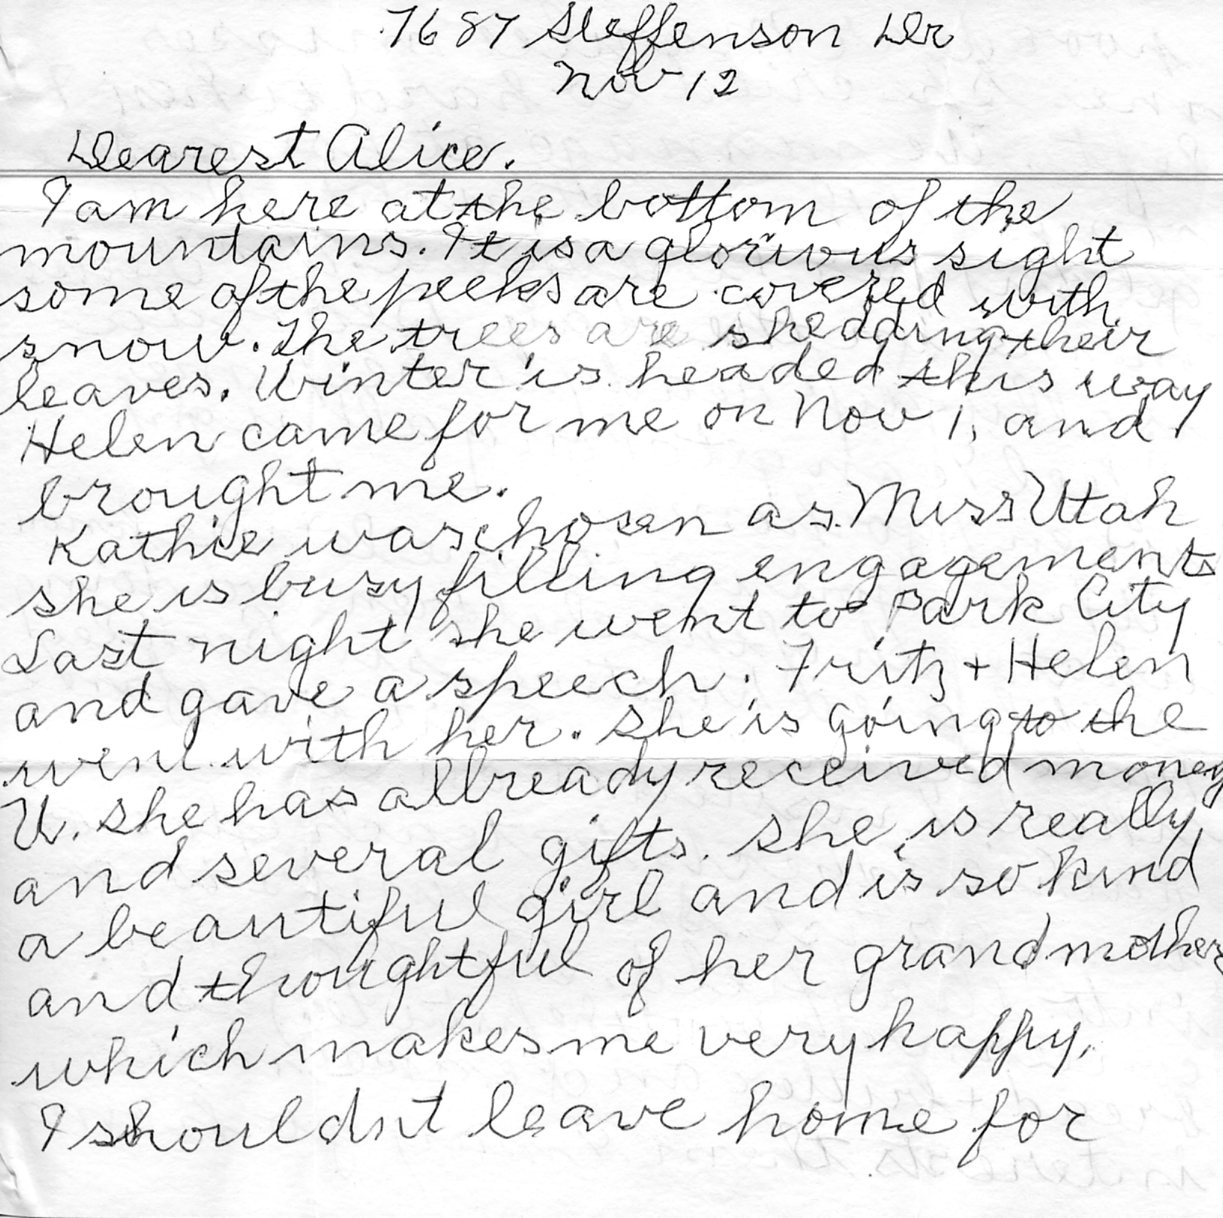 7687 Steffenson Dr
Nov 12
Dearest Alice.
I am here at the bottom of the
mountains. It is a glorious sight
some of the peeks are covered with
snow. The trees are shedding their
leaves. Winter is headed this way
Helen came for me on Nov 1, and
brought me.
Kathie was chosen as Miss Utah
she is busy filling engagements
Last night she went to Park City
and gave a speech. Fritz + Helen
went with her. She is going to the
U. she has allready received money
and several gifts. she is really
a beautiful girl and is so kind
and thoughtful of her grandmother
which makes me very happy.
I shouldnt leave home for